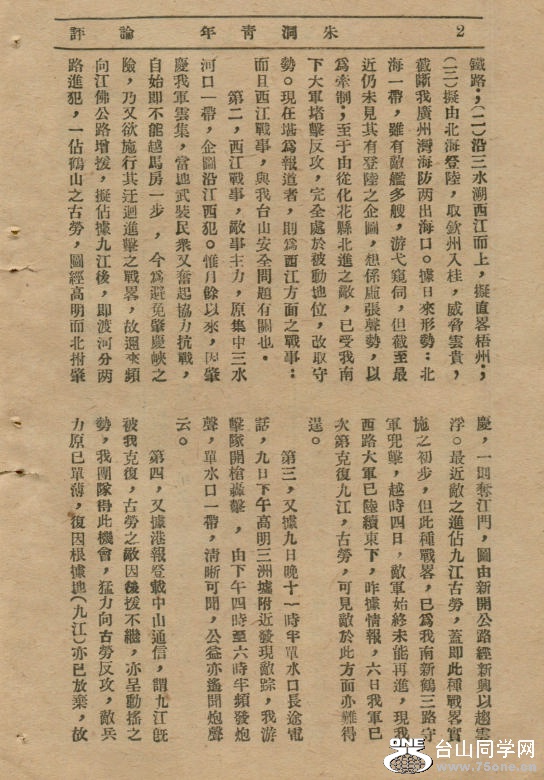 2　朱洞青年　論評
鐵路；（二）沿三水溯西江而上，擬直畧梧州；
（三）擬由北海登陸，取欽州入桂，威脅雲貴，
截斷我廣州灣海防两出海口。據日來形勢：北
海一帶，雖有敵艦多艘，游弋窺伺，但截至最
近仍未見其有登陸之企圖，想係虛張聲勢，以
爲牽制；至于由從化花縣北進之敵，已受我南
下大軍堵擊反攻，完全處於被動地位，故取守
勢。現在堪爲報道者，則爲西江方面之戰事：
而且西江戰事，與我台山安全問題有關也。
第二，西江戰事，敵事主力，原集中三水
河口一帶，企圖沿江西犯。惟月餘以來，因肇
慶我軍雲集，當地武裝民衆又奮起協力抗戰，
自始即不能越馬房一步，今爲避免肇慶峽之
險，乃又欲施行其迂迴進擊之戰畧，故迴來頻
向江佛公路增援，擬佔據九江後，即渡河分两
路進犯，一佔鶴山之古勞，圖經高明而北拊肇
慶，一則奪江門，圖由新開公路經新興以趨雲
浮。最近敵之進佔九江古勞，蓋即此種戰畧實
施之初步，但此種戰畧，已爲我南新鶴三路守
軍兜擊，越時四日，敵軍始終未能再進，現我
西路大軍已陸續東下，昨據情報，六日我軍已
次第克復九江，古勞，可見敵於此方面亦難得
逞。
第三，又據九日晚十一時半單水口長途電
話，九日下午高明三洲墟附近發現敵踪，我游
擊隊開槍轟擊，由下午四時至六時半頻發炮
聲，單水口一帶，清晰可聞，公益亦遙聞炮聲
云。
第四，又據港報登載中山通信，謂九江旣
被我克復，古勞之敵因後援不繼，亦呈動搖之
勢，我團隊得此機會，猛力向古勞反攻，敵兵
力原已單薄，復因根據地（九江）亦已放棄，故
ONE
台山同学网
www.75one.cn